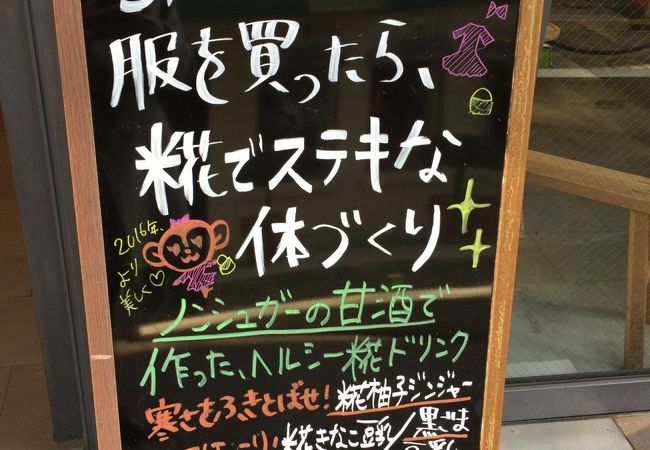 服を買ったら、
糀でステキな
体づくり
2016年、
より
美しく♡
ノンシュガーの甘酒で
作った、ヘルシー糀ドリンク
寒さをふきとばせ！
糀柚子ジンジャー
糀きなこ豆乳／
黒ごま